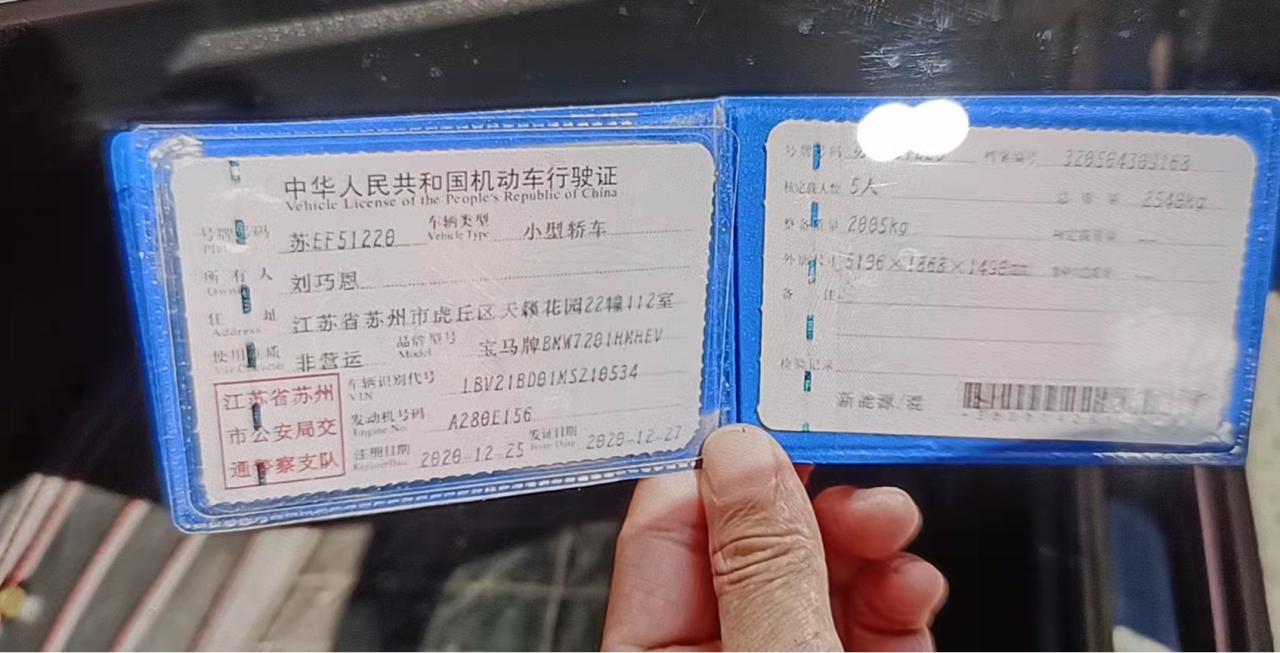 中华人民共和国机动车行驶证
Vehicle License of the People's Republic of China
号牌号码 苏EF51220 车辆类型 小型轿车
Vehicle Type
所有人 刘巧恩
Owner
住址 江苏省苏州市虎丘区天籁花园22幢112室
Address
使用性质 非营运 品牌型号 宝马牌BMW7201HMHEV
Use Character Model
江苏省苏州
市公安局交
通警察支队
车辆识别代号 LBV21BD01MS210534
VIN
发动机号码 A280E156
Engine No.
注册日期 2020-12-25 发证日期 2020-12-27
Register Date Issue Date
号牌号码 档案编号 320504309168
核定载人数 5人 总质量 2540kg
整备质量 2005kg 核定载质量 --
外廓尺寸 5196×1868×1498mm --
备注
检验记录
新能源/混